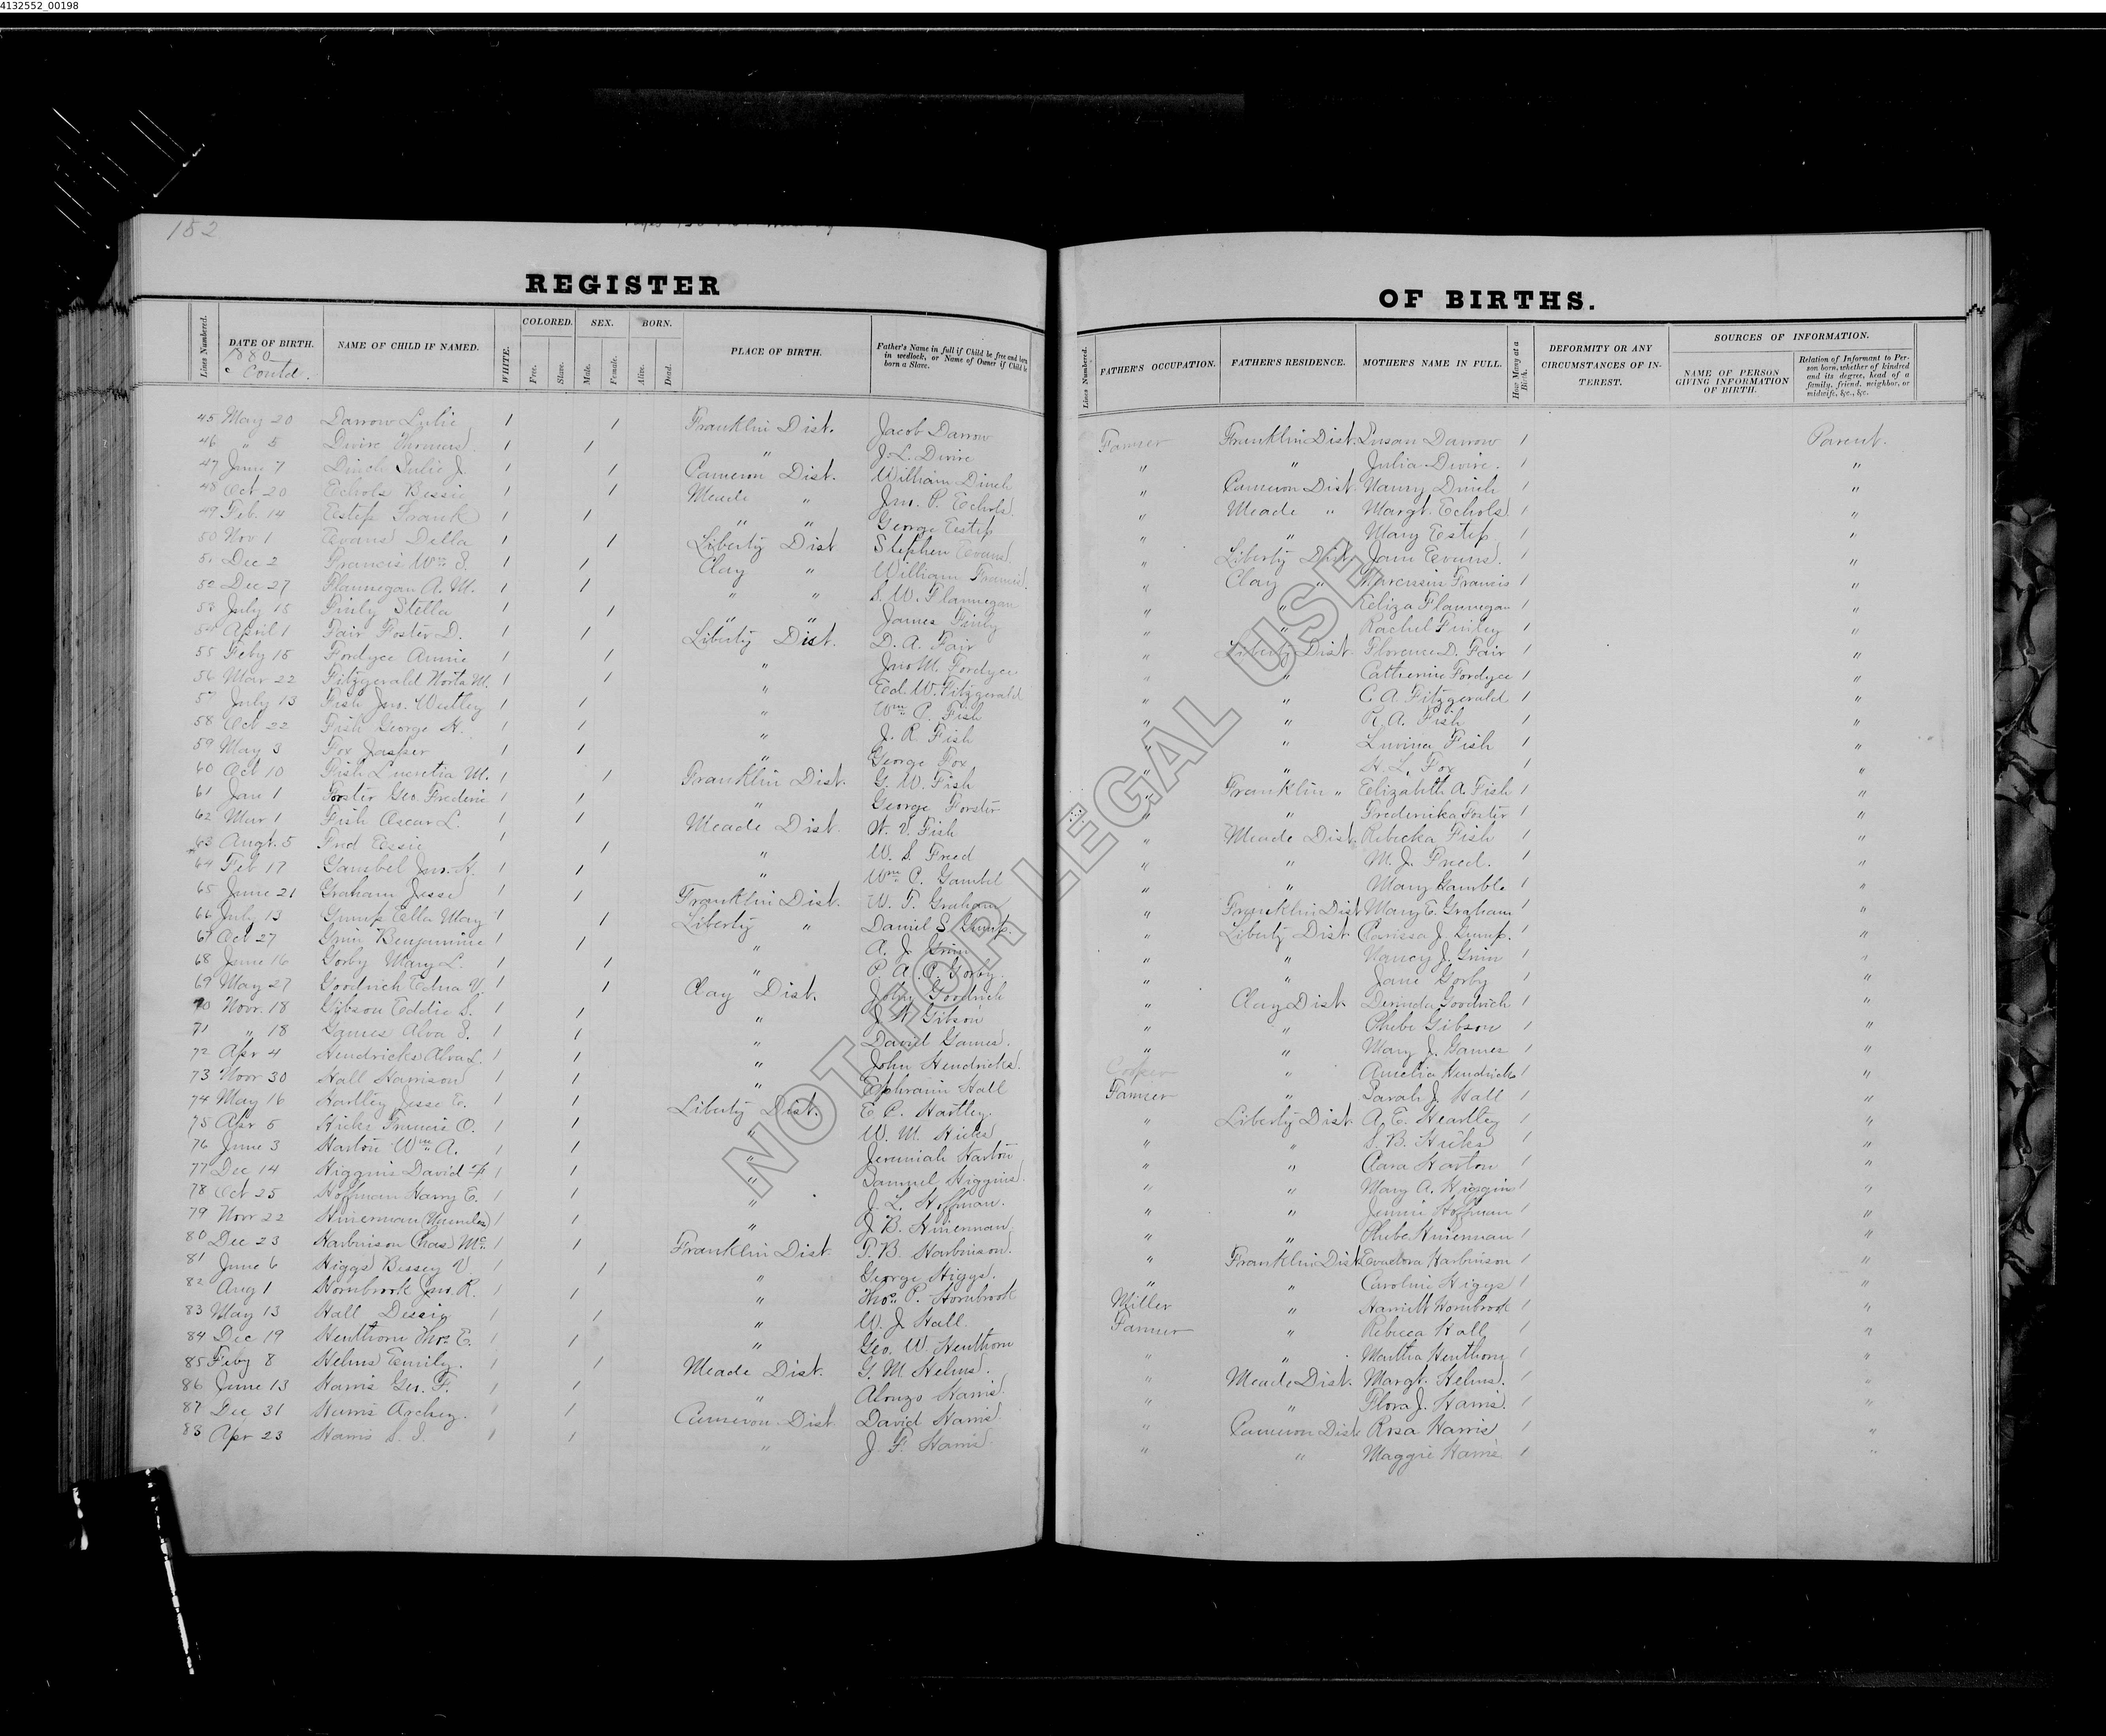 4132552_00198
152
REGISTER OF BIRTHS.
Lines Numbered. DATE OF BIRTH. NAME OF CHILD IF NAMED. WHITE. COLORED. Free. Slave. SEX. Male. Female. BORN. Alive. Dead. PLACE OF BIRTH. Father's Name in full if Child be free and born in wedlock, or Name of Owner if Child be born a Slave.
Lines Numbered. FATHER'S OCCUPATION. FATHER'S RESIDENCE. MOTHER'S NAME IN FULL. How Many at a Birth. DEFORMITY OR ANY CIRCUMSTANCES OF INTEREST. SOURCES OF INFORMATION. NAME OF PERSON GIVING INFORMATION OF BIRTH. Relation of Informant to Person born, whether of kindred and its degree, head of a family, friend, neighbor, or midwife, &c., &c.
1880 Contd.
45 May 20 Darrow Lulie 1 1 Franklin Dist. Jacob Darrow Farmer Franklin Dist. Susan Darrow 1 Parent.
46 " 5 Divire Thomas 1 1 " J. L. Divire " " Julia Divire. 1 "
47 June 7 Dinch Julie J. 1 1 Cameron Dist. William Dinch " Cameron Dist. Nancy Dinch 1 "
48 Oct 20 Echols Bessie 1 1 Meade " Jno. P. Echols " Meade " Margt. Echols 1 "
49 Feb. 14 Estep Frank 1 1 " " George Estep " " Mary Estep 1 "
50 Nov 1 Evans Della 1 1 Liberty Dist Stephen Evans " Liberty Dist. Jane Evans. 1 "
51 Dec 2 Francis Wm S. 1 1 Clay " William Francis " Clay " Francis 1 "
52 Dec 27 Flannegan A. M. 1 1 " " S. W. Flannegan " " Eliza Flannegan 1 "
53 July 15 Finly Stella 1 1 " " James Finly " " Rachel Finley 1 "
54 April 1 Fair Foster D. 1 1 Liberty Dist. D. A. Fair " Liberty Dist. Florence D. Fair 1 "
55 Feby 15 Fordyce Annie 1 1 " Jno M. Fordyce " " Catherine Fordyce 1 "
56 Mar 22 Fitzgerald Norta M. 1 1 " Ed. W. Fitzgerald " " C. A. Fitzgerald 1 "
57 July 13 Fish Jno. Westley 1 1 " Wm P. Fish " " R. A. Fish 1 "
58 Oct 22 Fish George H. 1 1 " J. R. Fish " " Luvina Fish 1 "
59 May 3 Fox Jasper 1 1 " George Fox " " H. L. Fox 1 "
60 Oct 10 Fish Lucretia M. 1 1 Franklin Dist. G. W. Fish " Franklin " Elizabeth A. Fish 1 "
61 Jan 1 Forster Geo. Frederic 1 1 " George Forster " " Frederika Foster 1 "
62 Mar 1 Fish Oscar L. 1 1 Meade Dist. Fish " Meade Dist. Rebecka Fish 1 "
63 Augt. 5 Fred Essie 1 1 " W. S. Freed " " M. J. Freed. 1 "
64 Feb 17 Gambel Jno. H. 1 1 " Wm C. Gambel " " Mary Gamble 1 "
65 June 21 Graham Jesse 1 1 Franklin Dist. W. T. Graham " Franklin Dist Mary E. Graham 1 "
66 July 13 Gump Ella May 1 1 Liberty " Daniel S. Gump. " Liberty Dist Clarissa J. Gump. 1 "
67 Oct 27 Grim Benjamine 1 1 " A. J. Grim " " Nancy J. Grim 1 "
68 June 16 Gorby Mary L. 1 1 " P. A. C. Gorby. " " Jane Gorby 1 "
69 May 27 Goodrich Edna V. 1 1 Clay Dist. John Goodrich " Clay Dist. Derinda Goodrich 1 "
70 Novr. 18 Gibson Eddie S. 1 1 " J. W. Gibson " " Phebe Gibson 1 "
71 " 18 Games Alva S. 1 1 " David Games. " " Mary J. Games 1 "
72 Apr 4 Hendricks Alva L. 1 1 " John Hendricks. Cooper " Amelia Hendricks 1 "
73 Novr 30 Hall Harrison 1 1 " Ephraim Hall Farmer " Sarah J. Hall 1 "
74 May 16 Hartley Jesse E. 1 1 Liberty Dist. E. C. Hartley. " Liberty Dist. A. E. Heartley 1 "
75 Apr 5 Hicks Francis O. 1 1 " W. M. Hicks " " S. B. Hicks 1 "
76 June 3 Harton Wm A. 1 1 " Jeremiah Harton " " Clara Harton 1 "
77 Dec 14 Higgins David F 1 1 " Samuel Higgins. " " Mary A. Higgins 1 "
78 Oct 25 Hoffman Harry E. 1 1 " J. L. Hoffman. " " Jennie Hoffman 1 "
79 Novr 22 Hinerman 1 1 " J. B. Hinerman. " " Phebe Hinerman 1 "
80 Dec 23 Harbinson Chas Mc. 1 1 Franklin Dist. T. B. Harbinson. " Franklin Dist. Harbinson 1 "
81 June 6 Higgs Bessey V. 1 1 " George Higgs. " " Caroline Higgs 1 "
82 Aug 1 Hornbrook Jno. R. 1 1 " Thos. P. Hornbrook Miller " Harriett Hornbrook 1 "
83 May 13 Hall Dessie 1 1 " W. J. Hall. Farmer " Rebecca Hall 1 "
84 Dec 19 Henthorn Thos E. 1 1 " Geo. W. Henthorn " " Martha Henthorn 1 "
85 Feby 8 Helms Emily. 1 1 Meade Dist. G. M Helms. " Meade Dist. Margt. Helms. 1 "
86 June 13 Harris Geo. F. 1 1 " Alonzo Harris. " " Flora J. Harris. 1 "
87 Dec 31 Harris 1 1 Cameron Dist. David Harris. " Cameron Dist. Rosa Harris 1 "
88 Apr 23 Harris S. I. 1 1 " J. F. Harris. " " Maggie Harris 1 "
NOT FOR LEGAL USE